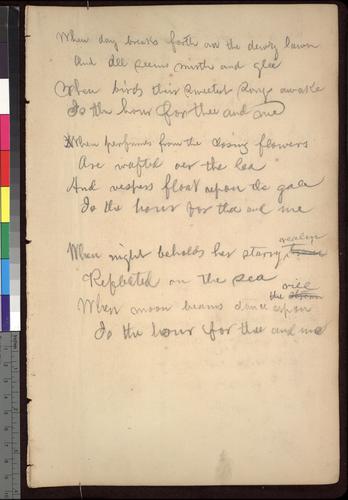 When day breaks forth over the dewy lawn
And all seems mirth and glee
When birds their sweetest songs awake
Is the hour for thee and me
When perfumes from the closing flowers
Are wafted oer the lea
And vespers float upon the gale
Is the hour for thee and me
When night beholds her starry
Reflected on the sea
When moon beams dance upon the
Is the hour for thee and me